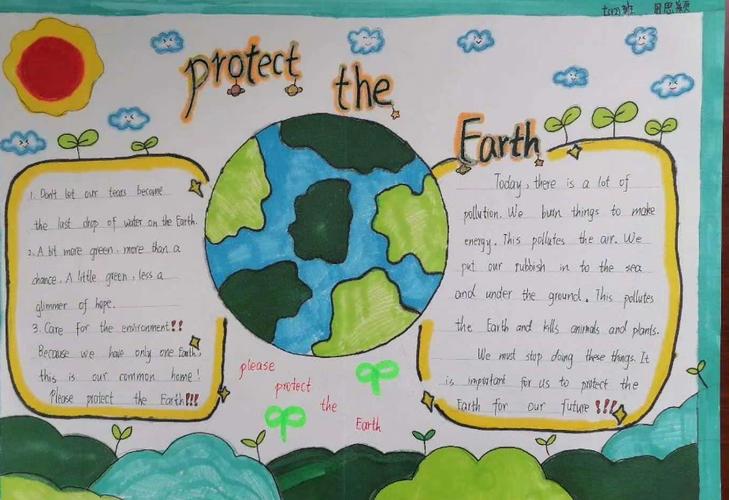 七(12)班 周思颖
protect the
Earth
1. Don't let our tears become
the last drop of water on the Earth.
2. A bit more green, more than a
chance. A little green, less a
glimmer of hope.
3. Care for the environment!!
Because we have only one Earth,
this is our common home!
Please protect the Earth!!!
please
protect
the
Earth
Today, there is a lot of
pollution. We burn things to make
energy. This pollutes the air. We
put our rubbish in to the sea
and under the ground. This pollutes
the Earth and kills animals and plants.
We must stop doing these things. It
is important for us to protect the
Earth for our future !!!